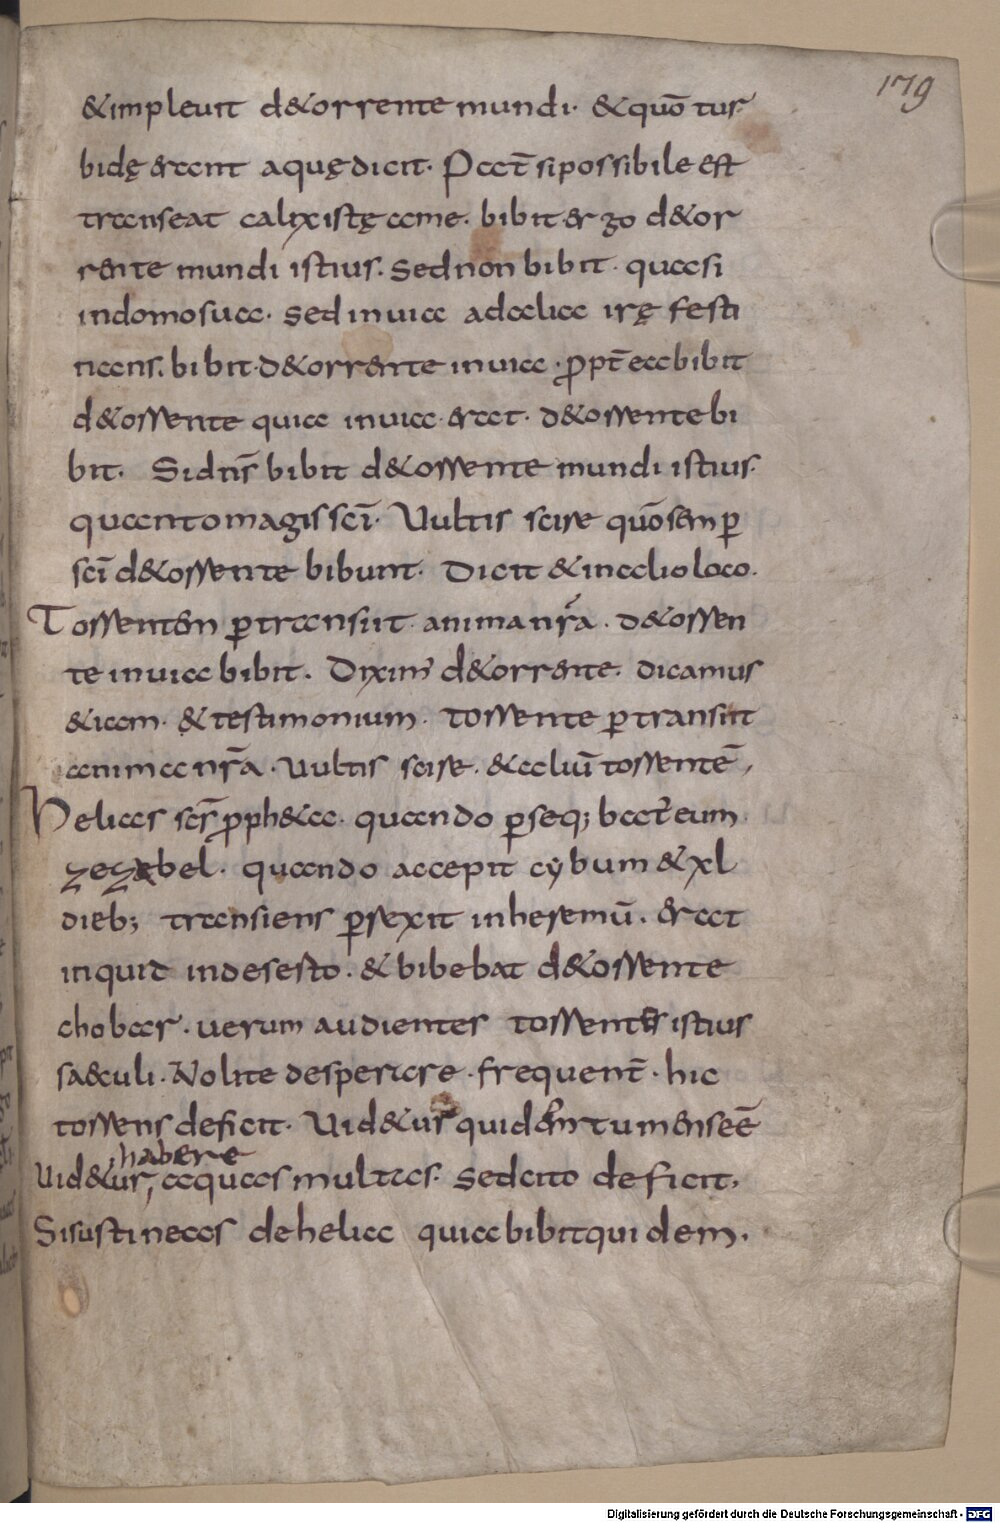 179
& impleuit d&orrente mundi. & quō tur
bidę erant aquę dicit. Pat̄ si possibile est
transeat calix istę ame. bibit ergo d&or
rente mundi istius. sed non bibit. quasi
in domo sua. sed in uia ad alia irę festi
nans. bibit. d&orrente in uia. ꝓpt̄ ea bibit
d&orrente quia in uia. erat. d&orrente bi
bit. Si dn̄s bibit d&orrente mundi istius.
quanto magis sc̄i. Uultis scire quōsem ꝑ
sc̄i d&orrente bibunt. Dicit & in alio loco.
Torrentem ꝑtransiit. anima nr̄a. d&orren
te in uia bibit. Dixim' d&orrente. dicamus
& iam. & testimonium. torrente ꝑtransiit
anima nr̄a. Uultis scire. & aliū torrentē,
Helias sc̄s ꝓph&a. quando ꝑseq; bat eum
zezabel. quando accepit cybum & xl
dieb; transiens ꝑrexit in heremū. erat
inquid in deserto. & bibebat d&orrente
chobar. uerum audientes torrentes istius
saeculi. Nolite desperare. frequent̄. hic
torrens deficit. Uid&ur quidem tumensēe
habere
Uid&ur, aquas multas. sed cito deficit,
Si sustineas de helia quia bibit quidem.
Digitalisierung gefördert durch die Deutsche Forschungsgemeinschaft - DFG